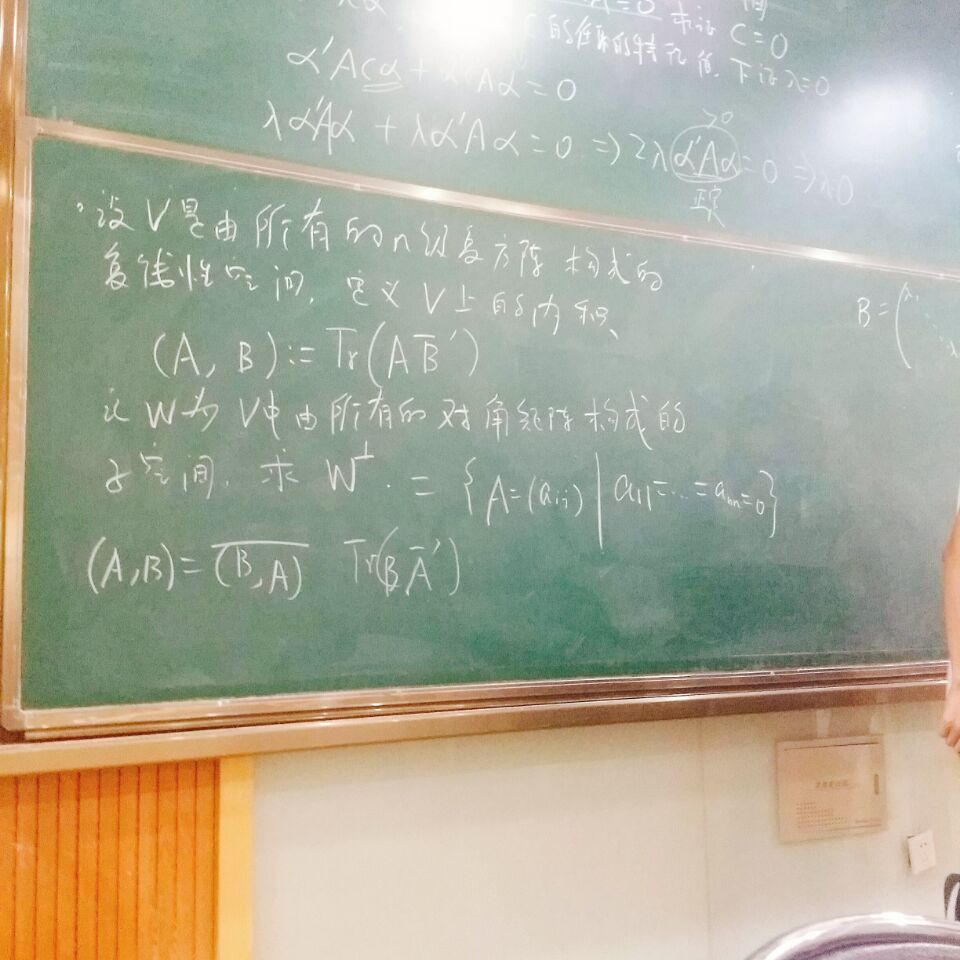 λα =0 求证 C=0
C的任取的特征值, 下证 λ=0
α'ACα + α'CAα=0
λα'Aα + λα'Aα=0 ⇒ 2λα'Aα=0 ⇒ λ0
>0
正定
设V是由所有的n级复方阵构成的
复线性空间, 定义V上的内积
B=(λ₁
(A, B):=Tr(AB̅')
记W为V中由所有的对角矩阵构成的
子空间, 求 W⊥ = {A=(aᵢⱼ) | a₁₁=...=aₙₙ=0}
(A,B)=\overline{(B,A)} Tr(BA̅')